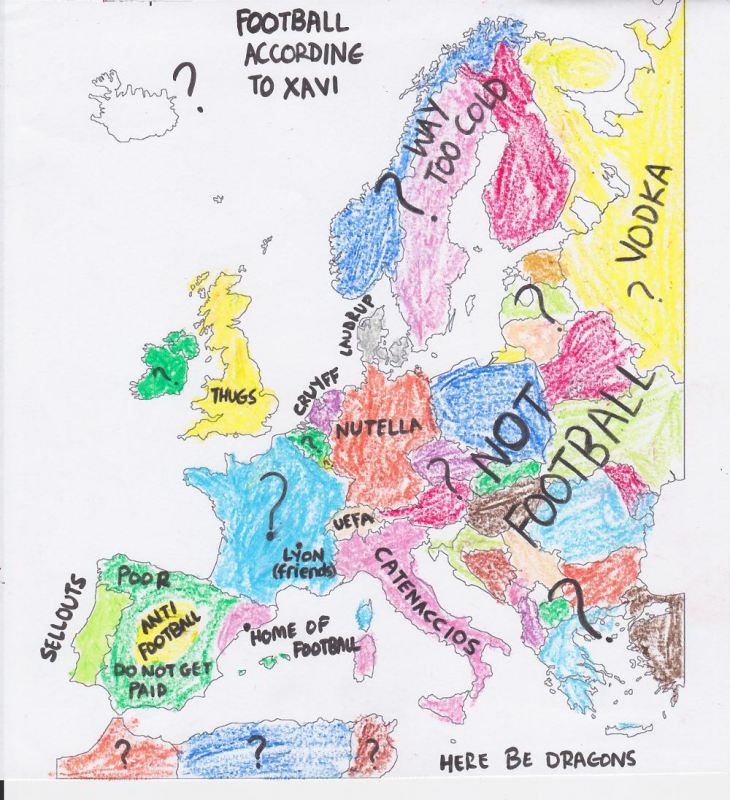 FOOTBALL
ACCORDING
TO XAVI
?
WAY
TOO COLD
?
VODKA
?
?
LAUDRUP
CRUYFF
?
THUGS
NUTELLA
?
?
NOT
FOOTBALL
?
UEFA
LYON
(friends)
CATENACCIOS
POOR
SELLOUTS
ANTI
FOOTBALL
DO NOT GET
PAID
HOME OF
FOOTBALL
?
?
?
?
HERE BE DRAGONS